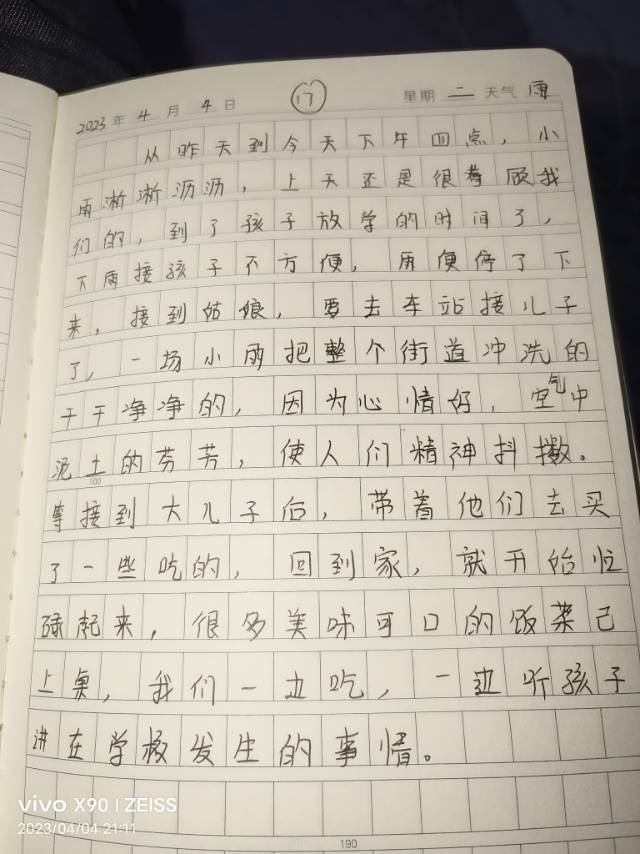 2023年 4月 4日 ⑰ 星期 二 天气 雨
从昨天到今天下午四点，小
雨淅淅沥沥，上天还是很着顾我
们的，到了孩子放学的时间了，
下雨接孩子不方便，雨便停了下
来，接到姑娘，要去车站接儿子
了，一场小雨把整个街道冲洗的
干干净净的，因为心情好，空气中
泥土的芬芳，使人们精神抖擞。
100
等接到大儿子后，带着他们去买
了一些吃的，回到家，就开始忙
碌起来，很多美味可口的饭菜己
上桌，我们一边吃，一边听孩子
讲在学校发生的事情。
190
vivo X90 | ZEISS
2023/04/04 21:11